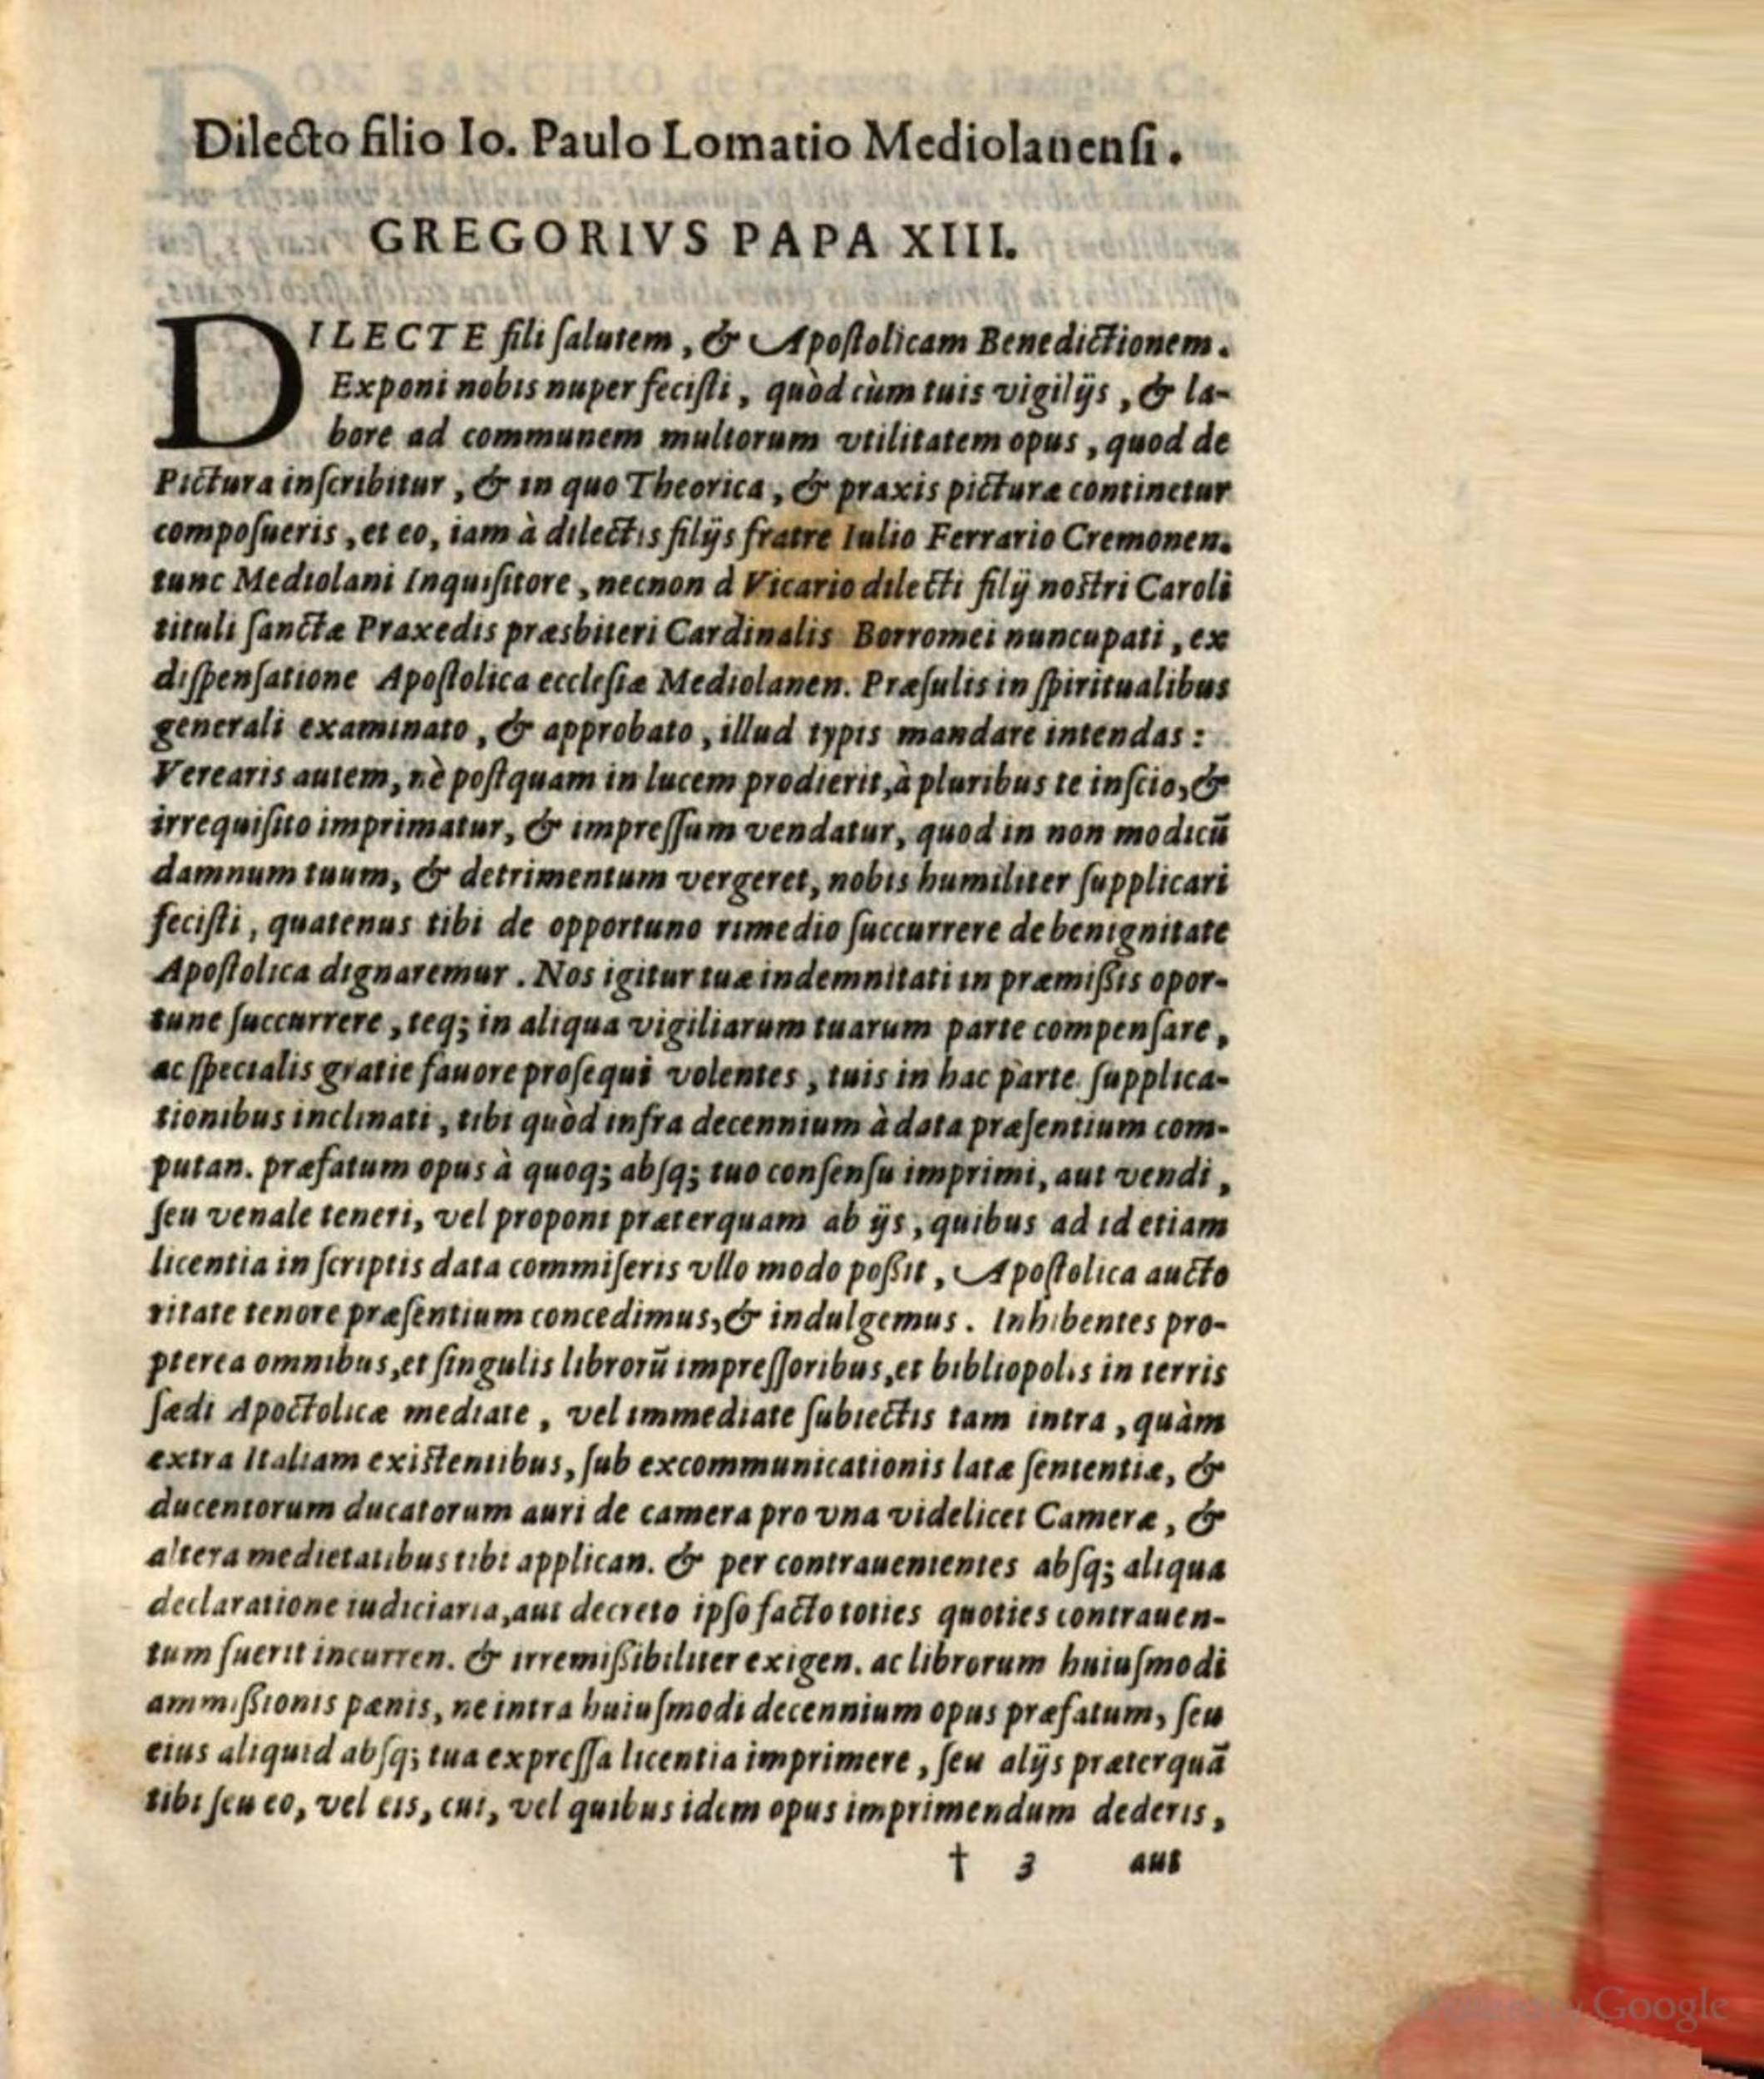 Dilecto filio Io. Paulo Lomatio Mediolanensi.
GREGORIVS PAPA XIII.
DILECTE fili salutem, & Apostolicam Benedictionem.
Exponi nobis nuper fecisti, quòd cùm tuis vigilijs, & la-
bore ad communem multorum vtilitatem opus, quod de
Pictura inscribitur, & in quo Theorica, & praxis picturæ continetur
composueris, et eo, iam à dilectis filijs fratre Iulio Ferrario Cremonen.
tunc Mediolani Inquisitore, necnon d Vicario dilecti filij nostri Caroli
tituli sanctæ Praxedis præsbiteri Cardinalis Borromei nuncupati, ex
dispensatione Apostolica ecclesiæ Mediolanen. Præsulis in spiritualibus
generali examinato, & approbato, illud typis mandare intendas:
Verearis autem, nè postquam in lucem prodierit, à pluribus te inscio, &
irrequisito imprimatur, & impressum vendatur, quod in non modicū
damnum tuum, & detrimentum vergeret, nobis humiliter supplicari
fecisti, quatenus tibi de opportuno rimedio succurrere de benignitate
Apostolica dignaremur. Nos igitur tuæ indemnitati in præmissis opor-
tune succurrere, teq; in aliqua vigiliarum tuarum parte compensare,
ac specialis gratie fauore prosequi volentes, tuis in hac parte supplica-
tionibus inclinati, tibi quòd infra decennium à data præsentium com-
putan. præfatum opus à quoq; absq; tuo consensu imprimi, aut vendi,
seu venale teneri, vel proponi præterquam ab ijs, quibus ad id etiam
licentia in scriptis data commiseris vllo modo possit, Apostolica aucto
ritate tenore præsentium concedimus, & indulgemus. Inhibentes pro-
pterea omnibus, et singulis librorū impressoribus, et bibliopolis in terris
sædi Apoctolicæ mediate, vel immediate subiectis tam intra, quàm
extra Italiam existentibus, sub excommunicationis latæ sententiæ, &
ducentorum ducatorum auri de camera pro vna videlicet Cameræ, &
altera medietatibus tibi applican. & per contrauenientes absq; aliqua
declaratione iudiciaria, aut decreto ipso facto toties quoties contrauen-
tum fuerit incurren. & irremissibiliter exigen. ac librorum huiusmodi
ammissionis pænis, ne intra huiusmodi decennium opus præfatum, seu
eius aliquid absq; tua expressa licentia imprimere, seu alijs præterquā
tibi seu eo, vel eis, cui, vel quibus idem opus imprimendum dederis,
† 3 aut
Digitized by Google